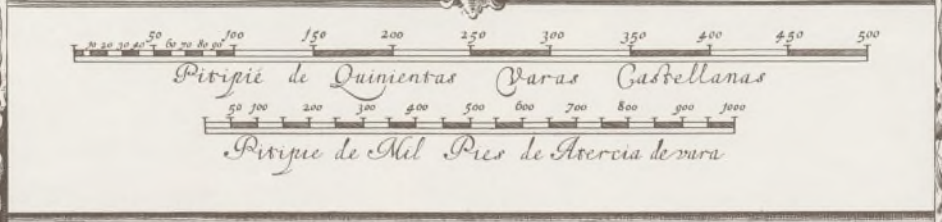 10 20 30 40 50 60 70 80 90 100 150 200 250 300 350 400 450 500
Pitipié de Quinientas Varas Castellanas
50 100 200 300 400 500 600 700 800 900 1000
Pitipie de Mil Pies de Atercia de vara